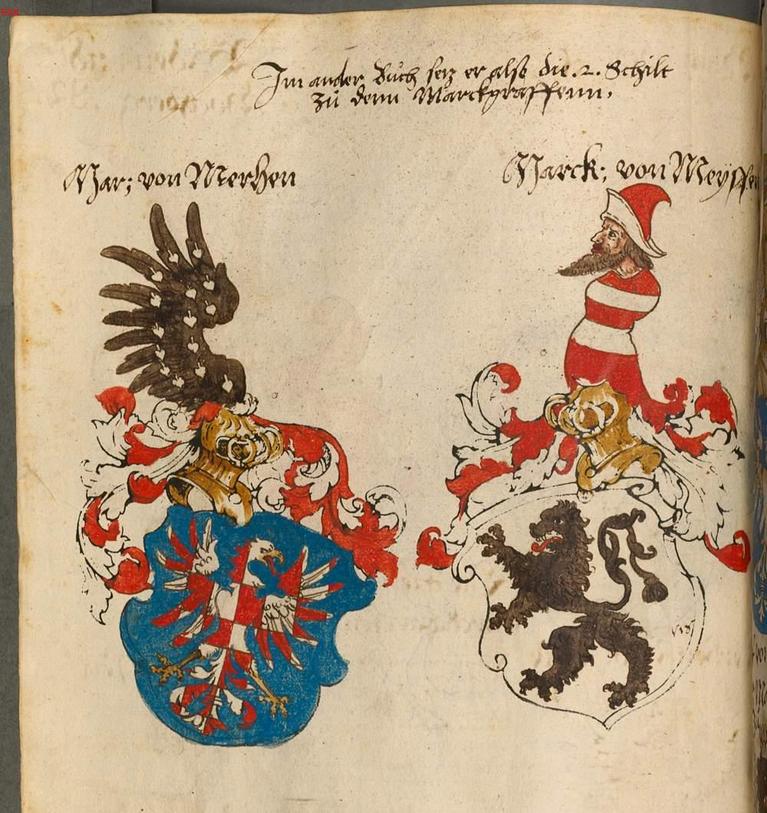 Im ander Buch setz er also die .2. Schilt
zu denn Marckgraffenn.
Mar: von Merhen
Marck: von Meyssen